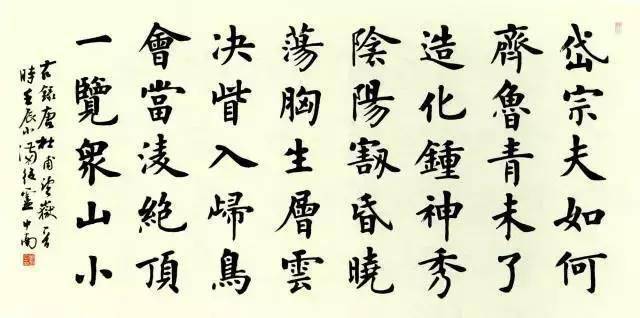 岱宗夫如何
齊魯青未了
造化鍾神秀
陰陽割昏曉
蕩胸生層雲
决眥入歸鳥
會當淩絕頂
一覽衆山小
右錄唐杜甫望嶽一首
時壬辰小滿後盧中南